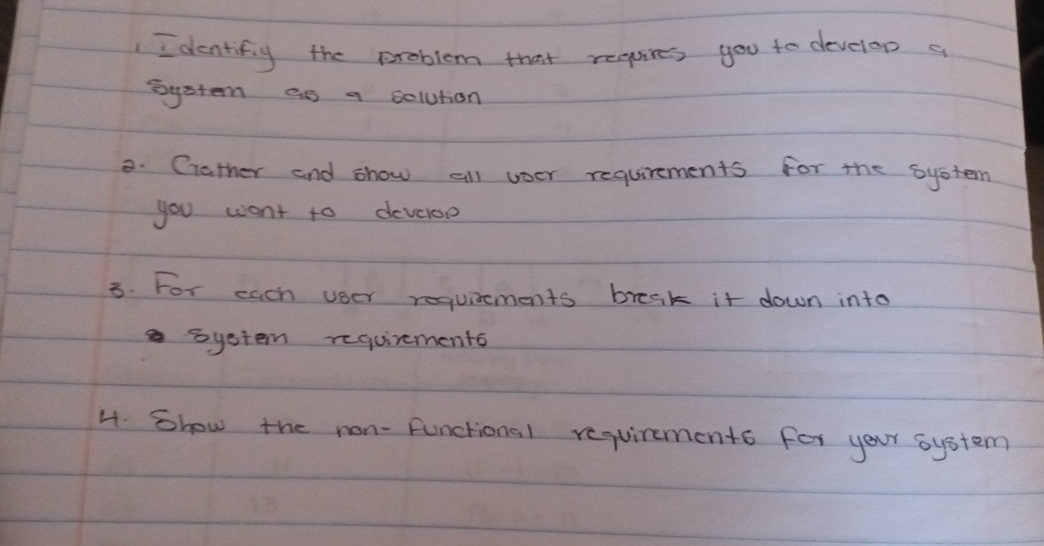 1. Identifiy the problem that requires you to develop a
system as a solution
2. Gather and show all user requirements for the system
you want to develop
3. For each user requirements break it down into
system requirements
4. Show the non-functional requirements for your system